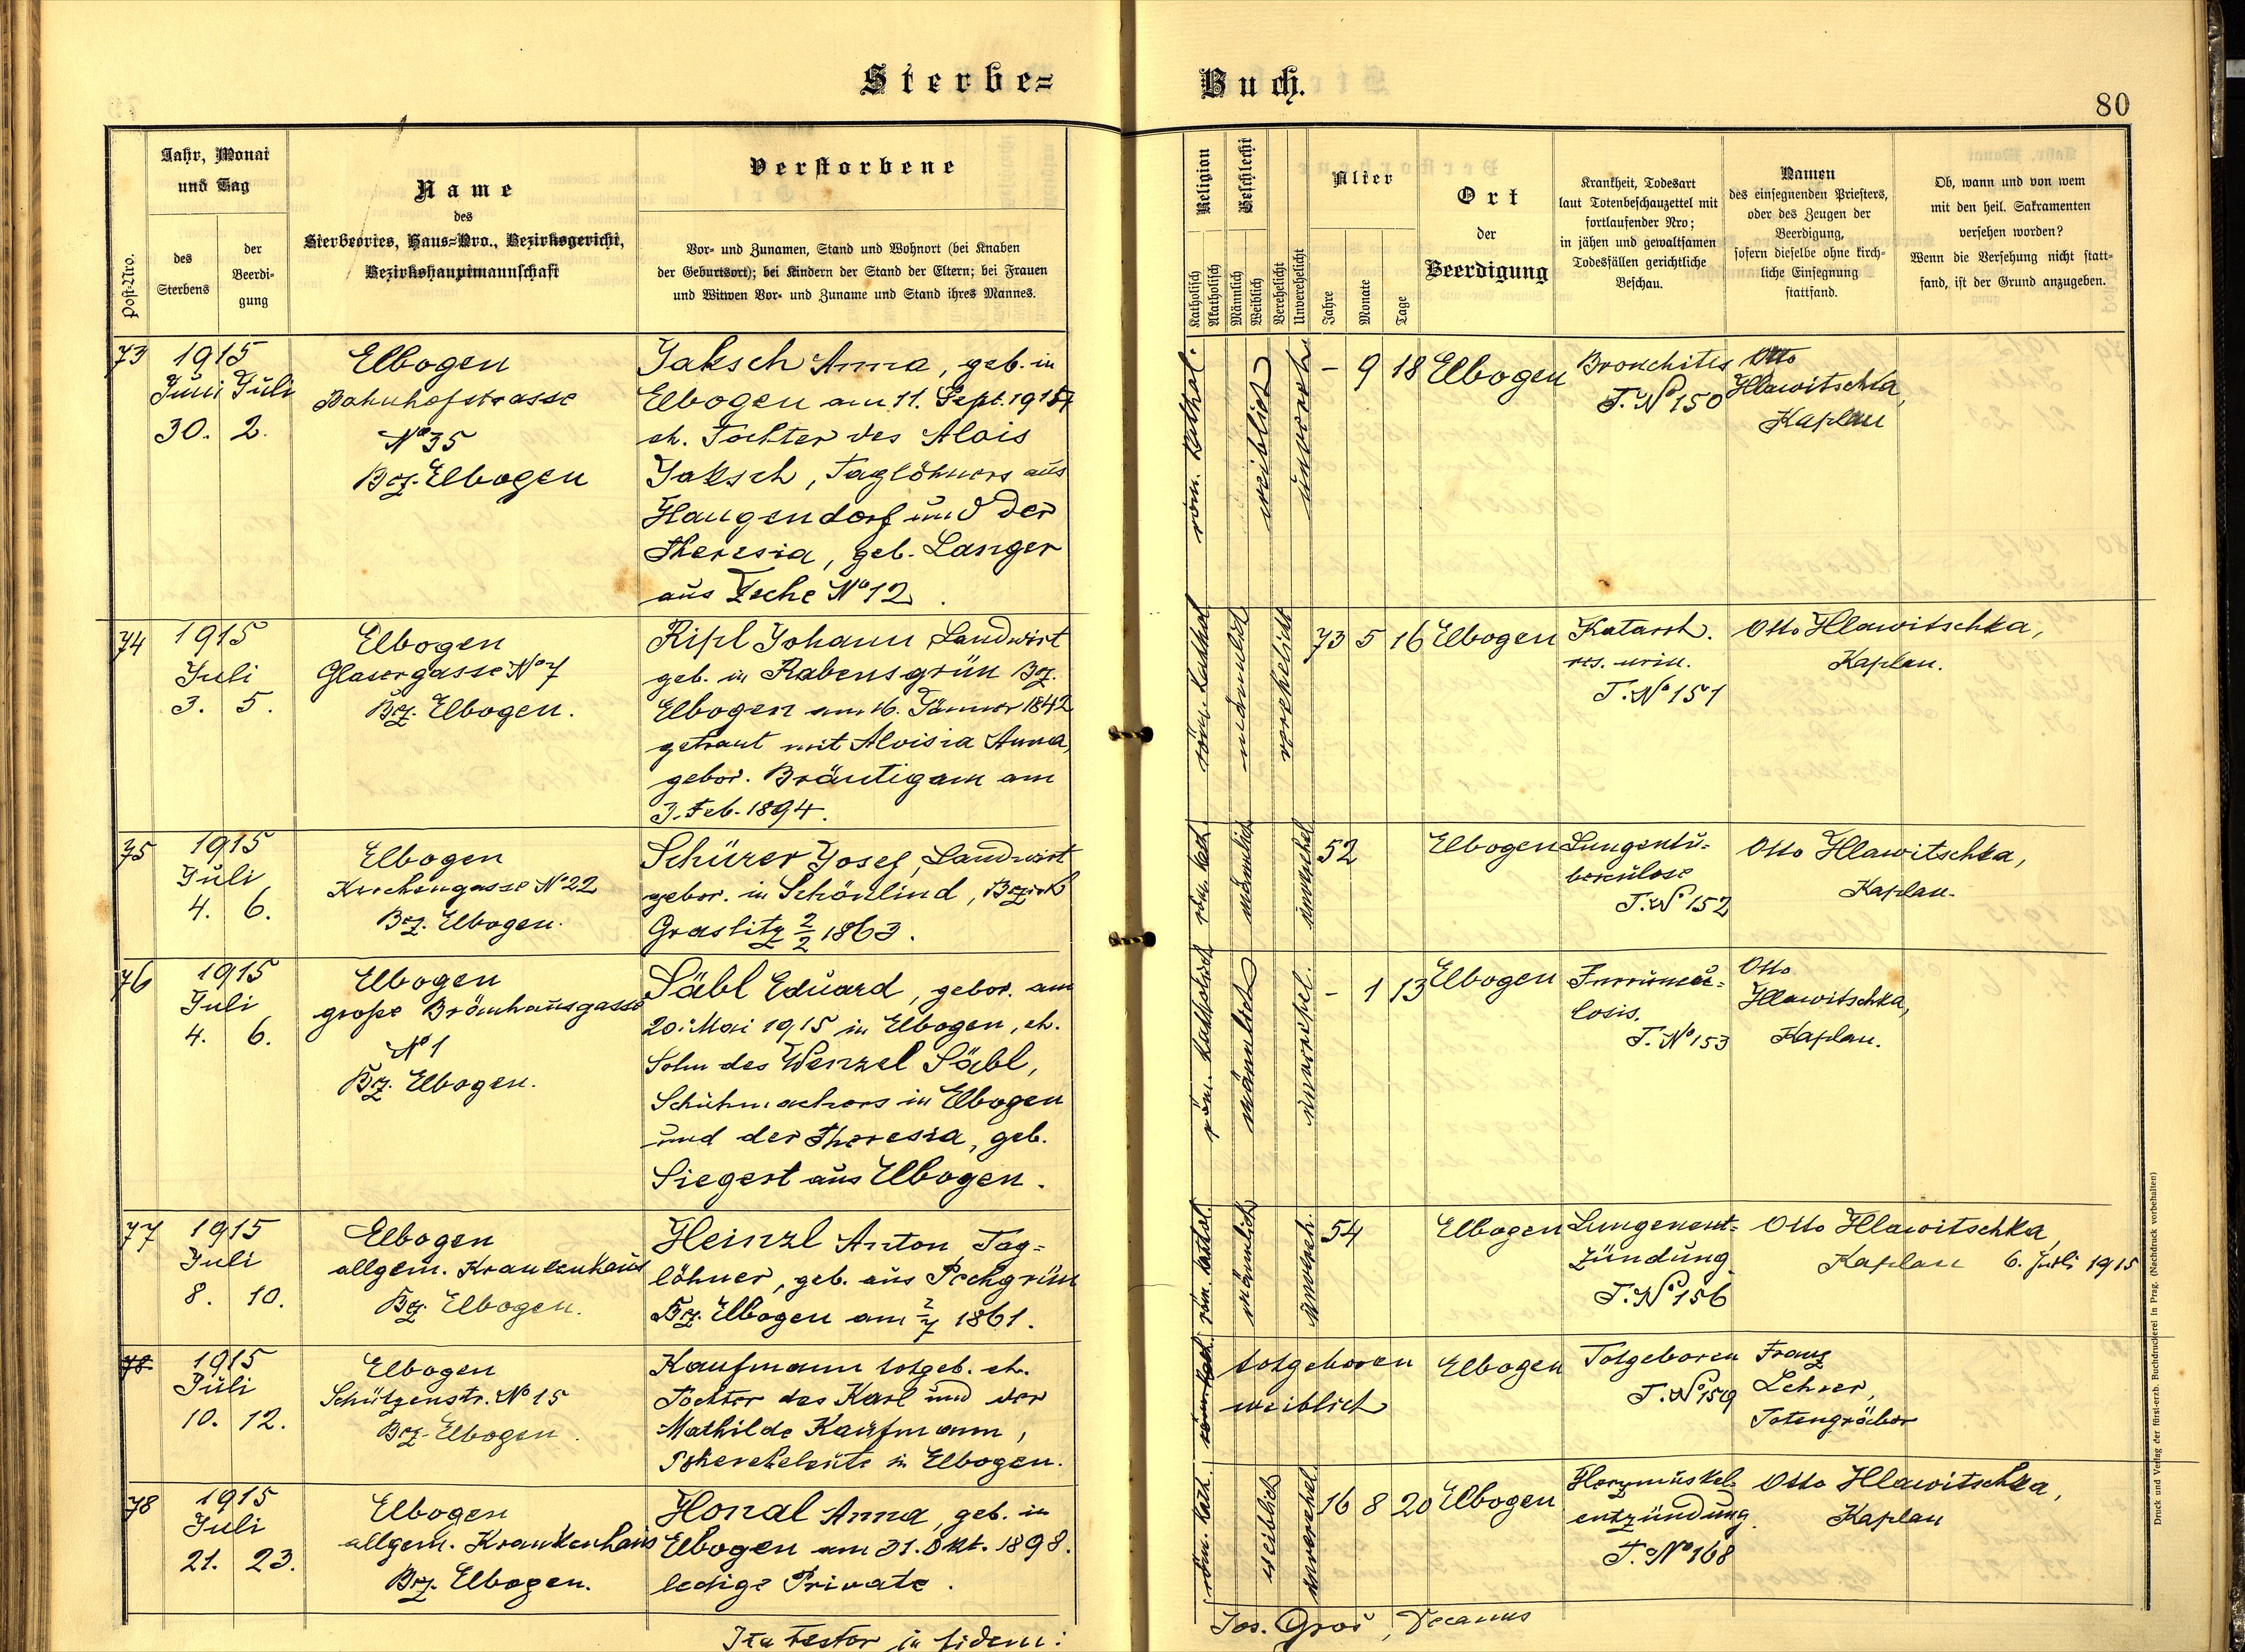 Sterbe=
Buch.
80
Post-Nro.
Jahr, Monat
und Tag
des
Sterbens
der
Beerdi-
gung
Name
des
Sterbeortes, Haus=Nro., Bezirksgericht,
Bezirkshauptmannschaft
Verstorbene
Vor- und Zunamen, Stand und Wohnort (bei Knaben
der Geburtsort); bei Kindern der Stand der Eltern; bei Frauen
und Witwen Vor- und Zuname und Stand ihres Mannes.
Religion
Katholisch
Akatholisch
Geschlecht
Männlich
Weiblich
Verehelicht
Unverehelicht
Alter
Jahre
Monate
Tage
Ort
der
Beerdigung
Krankheit, Todesart
laut Totenbeschauzettel mit
fortlaufender Nro;
in jähen und gewaltsamen
Todesfällen gerichtliche
Beschau.
Namen
des einsegnenden Priesters,
oder des Zeugen der
Beerdigung,
sofern dieselbe ohne kirch-
liche Einsegnung
stattfand.
Ob, wann und von wem
mit den heil. Sakramenten
versehen worden?
Wenn die Versehung nicht statt-
fand, ist der Grund anzugeben.
73
1915
Juni Juli
30. 2.
Elbogen
Bahnhofstrasse
No 35
Bez. Elbogen
Jaksch Anna, geb. in
Elbogen am 11. Sept.
eh. Tochter des Alois
Jaksch, Taglöhners aus
Haugendorf und der
Theresia, geb. Langer
aus No 12.
röm. kathol.
weiblich
unvereh.
- 9 18
Elbogen
Bronchitis
T. No 150
Otto
Hlawitschka,
Kaplan
74
1915
Juli
3. 5.
Elbogen
Glasergasse No 7
Bez. Elbogen.
Ripl Johann Landwirt
geb. in Rabensgrün Bz.
Elbogen am 16. Jänner 1842
getraut mit Aloisia Anna,
gebor. Bräutigam am
3. Feb. 1894.
röm. kathol
männlich
verehelicht
73 5 16
Elbogen
Katarrh.
urin.
T. No 151
Otto Hlawitschka,
Kaplan.
75
1915
Juli
4. 6.
Elbogen
Kirchengasse No 22
Bez. Elbogen.
Schürer Josef, Landwirt
gebor. in Schönlind, Bezirk
Graslitz 2/2 1863.
röm. kath.
männlich
unverehel
52
Elbogen
Lungentu-
berculose
T. No 152
Otto Hlawitschka,
Kaplan.
76
1915
Juli
4. 6.
Elbogen
große Bräuhausgasse
No 1
Bez. Elbogen.
Säbl Eduard, gebor. am
20. Mai 1915 in Elbogen, eh.
Sohn des Wenzel Säbl,
Schuhmachers in Elbogen
und der Theresia, geb.
Siegert aus Elbogen.
röm. katholisch
männlich
unverehel.
- 1 13
Elbogen
Furuncu-
losis.
T. No 153
Otto
Hlawitschka,
Kaplan.
77
1915
Juli
8. 10.
Elbogen
allgem. Krankenhaus
Bez. Elbogen.
Heinzl Anton, Tag-
löhner, geb. aus Pechgrün
Bez. Elbogen am 2/7 1861.
röm. kathol.
männlich
unvereh.
54
Elbogen
Lungenent-
zündung
T. No 156
Otto Hlawitschka,
Kaplan
6. Juli 1915
78
1915
Juli
10. 12.
Elbogen
Schützenstr. No 15
Bez. Elbogen.
Kaufmann totgeb. eh.
Tochter des Karl und der
Mathilde Kaufmann,
in Elbogen.
totgeboren
weiblich
Elbogen
Totgeboren
T. No 159
Franz
Lehrer,
Totengräber
78
1915
Juli
21. 23.
Elbogen
allgem. Krankenhaus
Bez. Elbogen.
Honal Anna, geb. in
Elbogen am 31. Okt. 1898.
ledige Private.
röm. kath.
weiblich
unverehel.
16 8 20
Elbogen
Herzmuskel-
entzündung.
T. No 168
Otto Hlawitschka,
Kaplan
Ita testor in fidem:
Jos. Groš, Decanus
Druck und Verlag der fürst-erzb. Buchdruckerei in Prag. (Nachdruck vorbehalten)